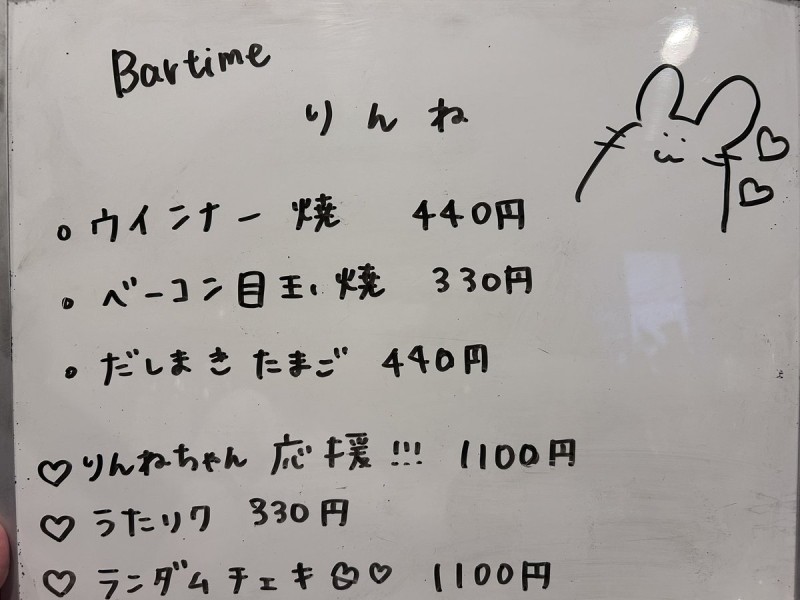 Bartime
りんね
ウインナー焼 440円
ベーコン目玉焼 330円
だしまきたまご 440円
♡りんねちゃん応援!!! 1100円
♡うたリク 330円
♡ランダムチェキ♡♡ 1100円